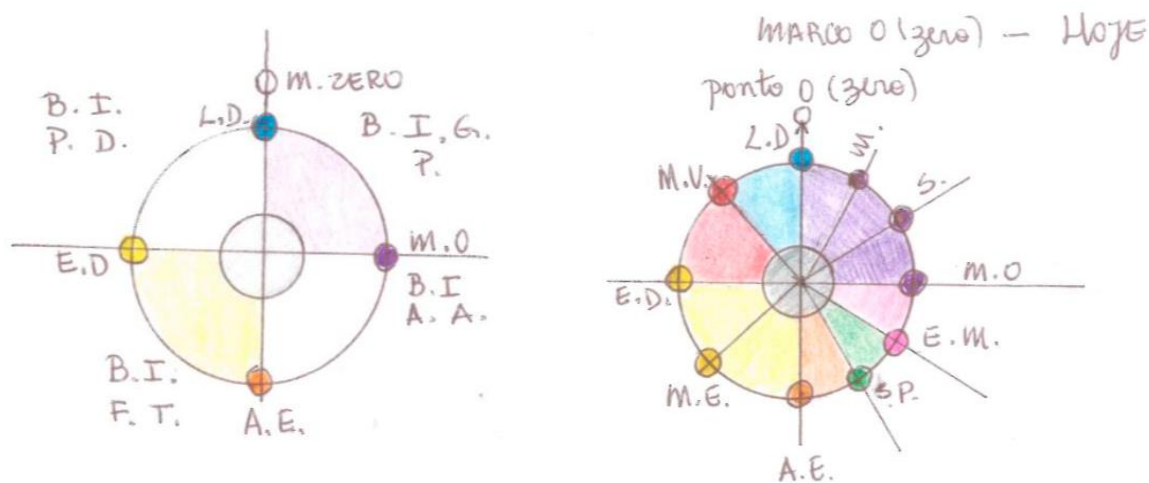 M. ZERO
B. I.
P. D.
L.D.
B. I, G.
P.
E.D
M.O
B. I
A. A.
B. I.
F. T.
A.E.
MARCO 0 (zero) — HOJE
ponto 0 (zero)
L.D
M.
S.
M.V.
E.D.
M.O
E.M.
S.P.
M.E.
A.E.